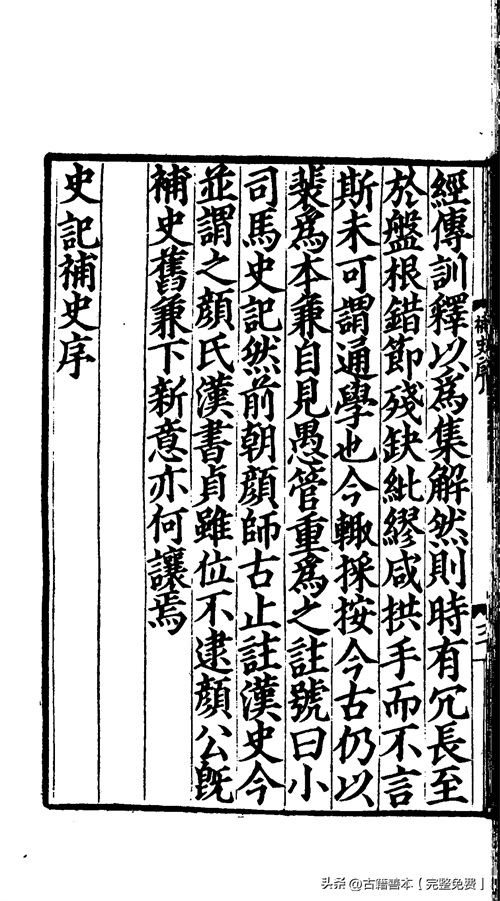 經傳訓釋以為集解然則時有冗長至
於盤根錯節殘缺紕繆咸拱手而不言
斯未可謂通學也今輙採按今古仍以
裴為本兼自見愚管重為之註號曰小
司馬史記然前朝顔師古止註漢史今
並謂之顔氏漢書貞雖位不逮顔公旣
補史舊兼下新意亦何讓焉
史記補史序
補史序
三
头条 @古籍善本【完整免费】